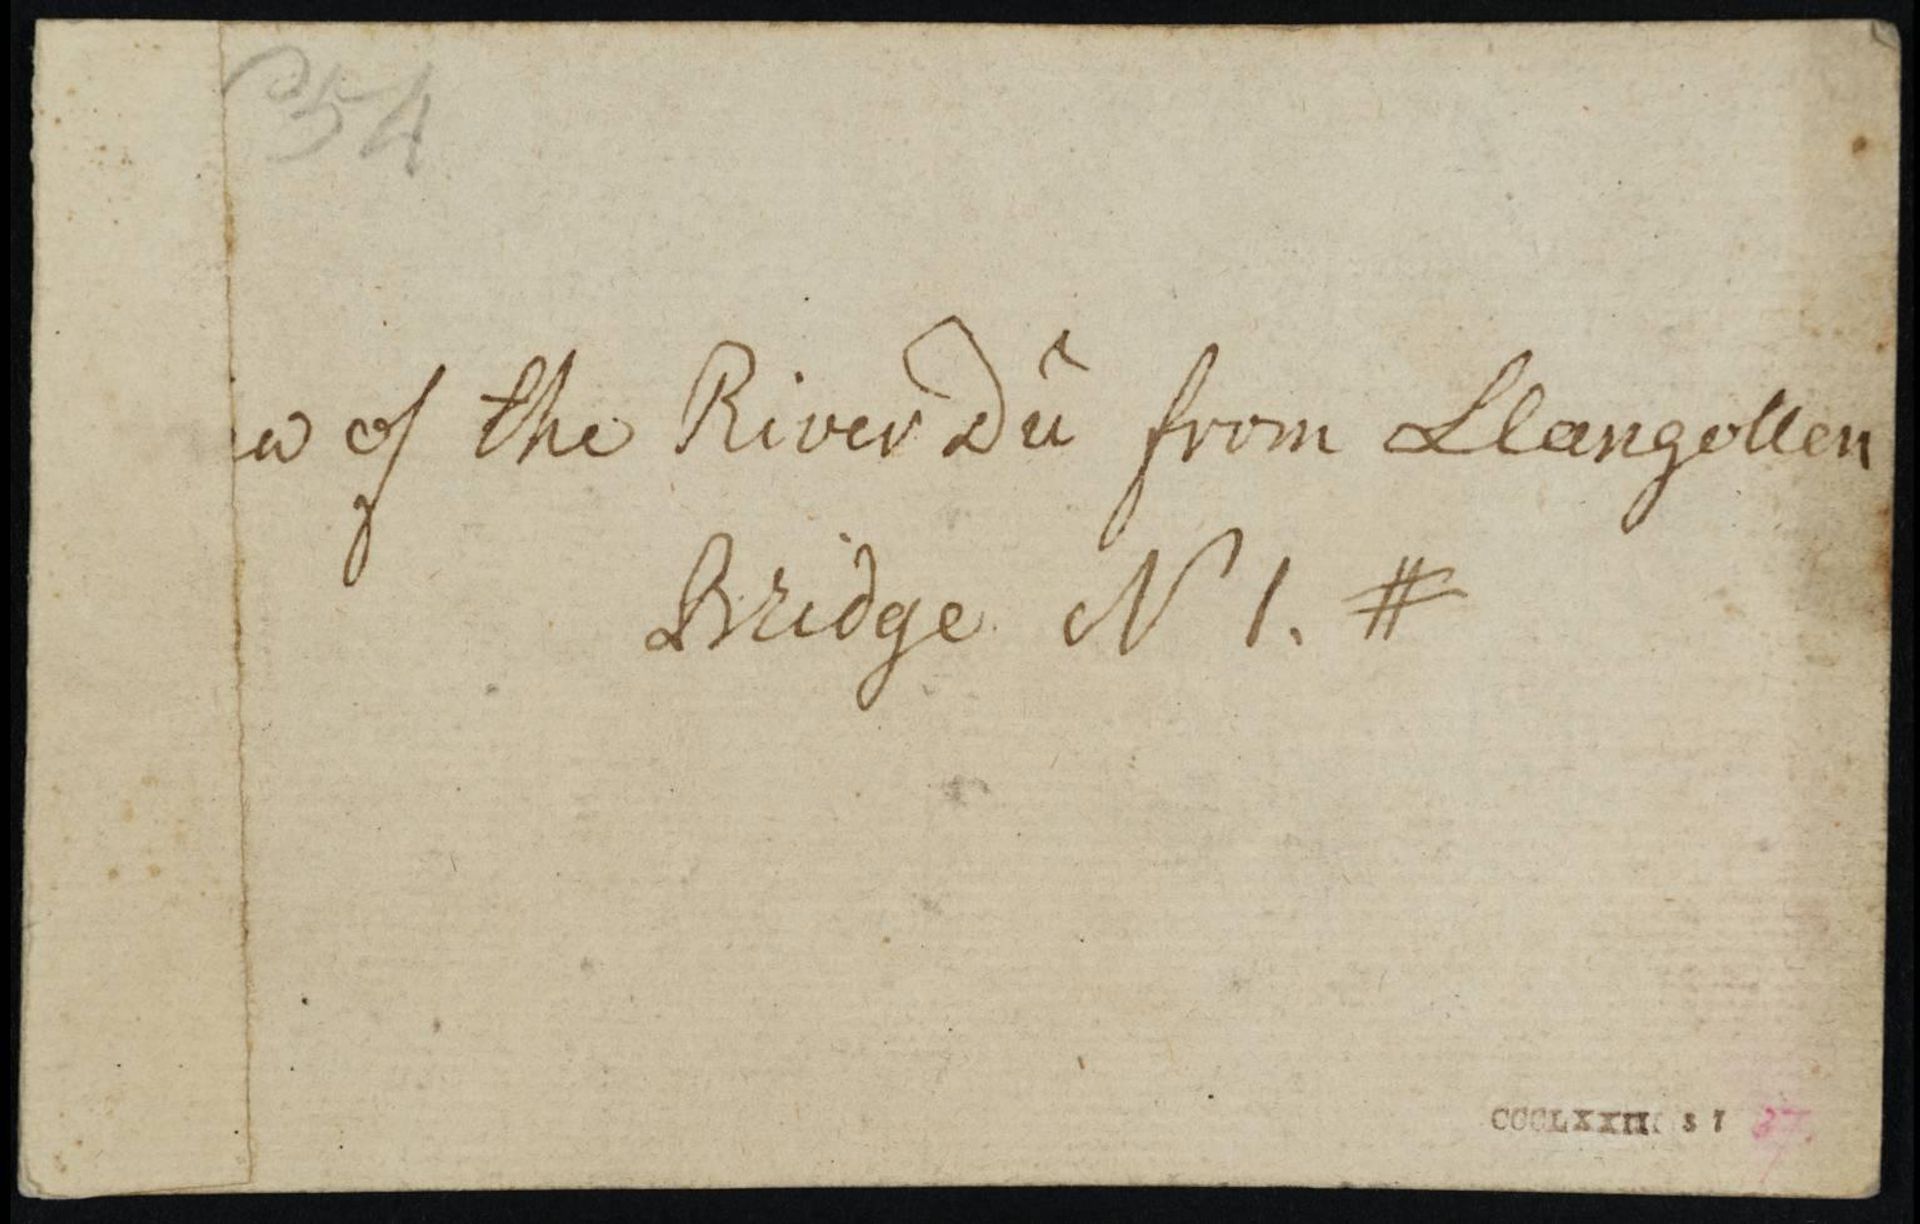 54
w of the River Dû from Llangollen
Bridge N 1. #
CCCLXXII 37 37.